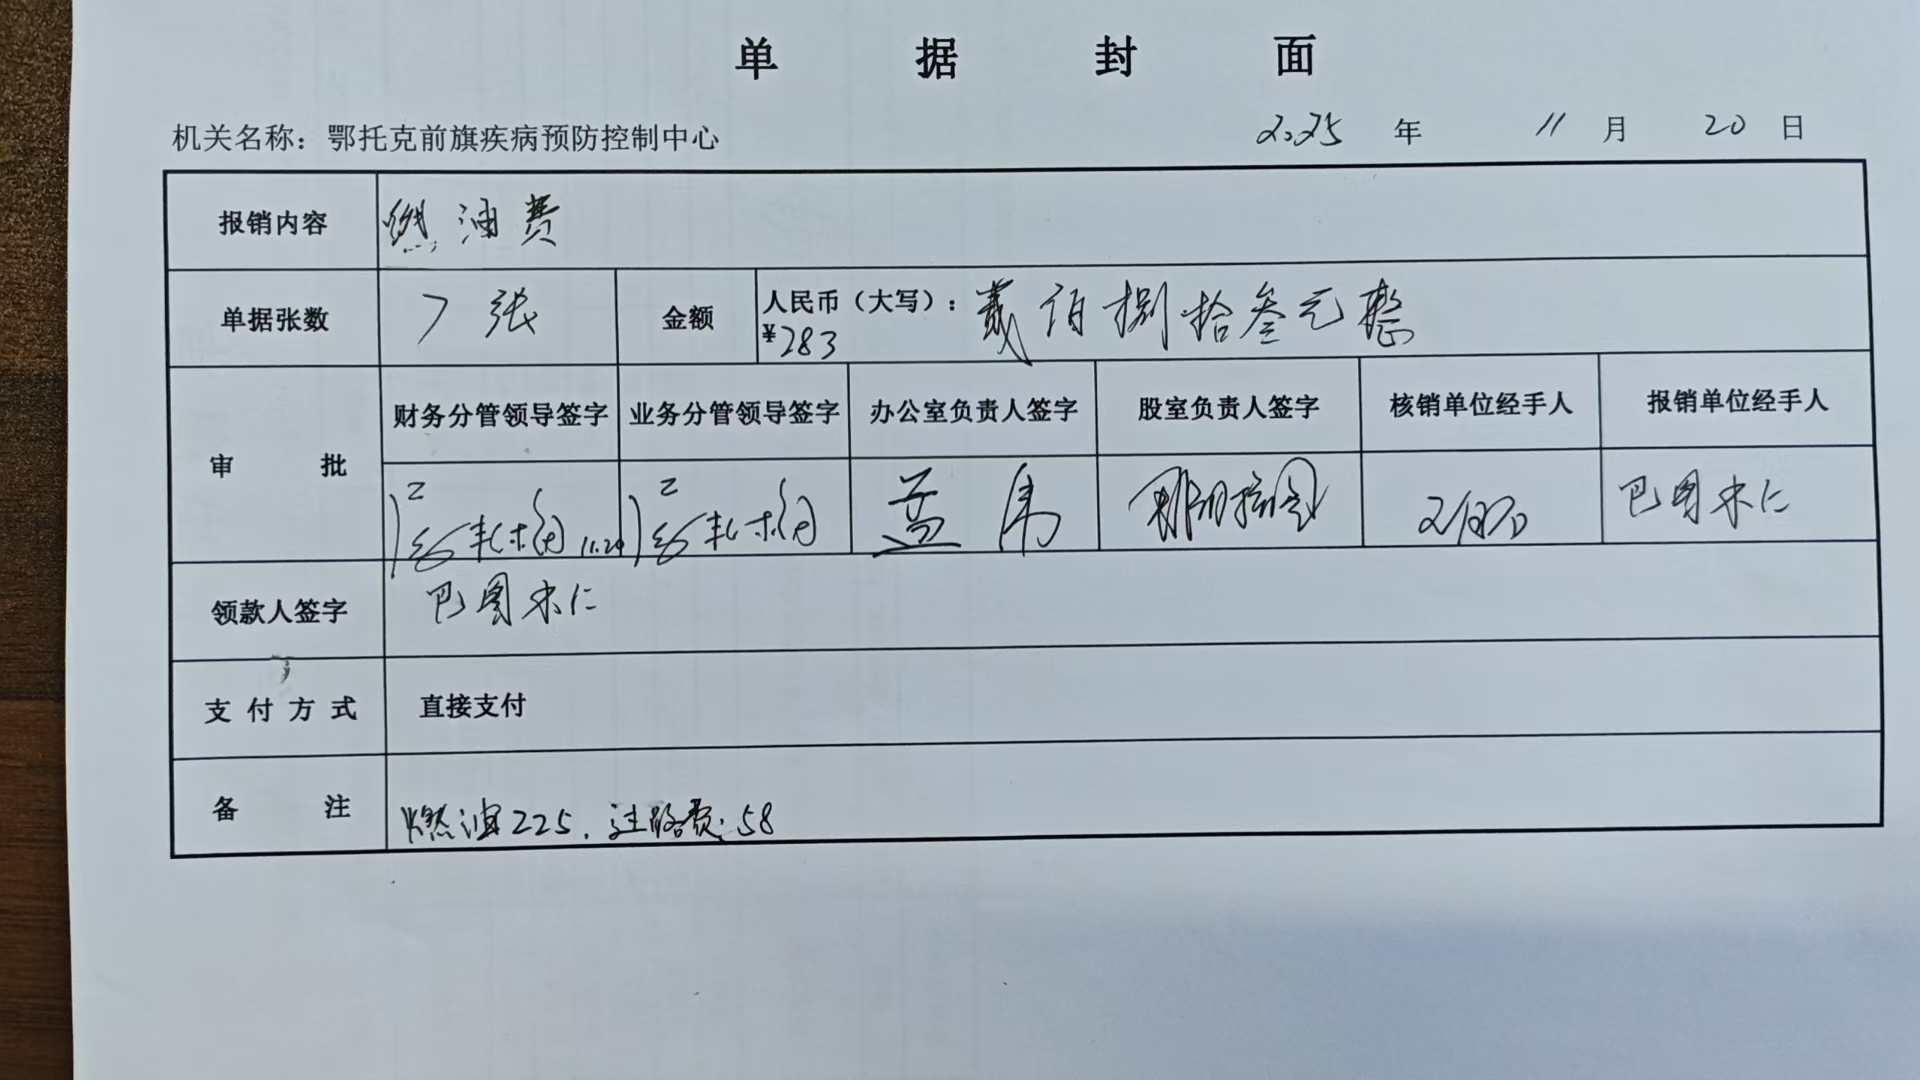 单 据 封 面
机关名称：鄂托克前旗疾病预防控制中心 2025 年 11 月 20 日
报销内容 燃油费
单据张数 7张 金额 人民币（大写）：贰佰捌拾叁元整
¥283
审 批 财务分管领导签字 业务分管领导签字 办公室负责人签字 股室负责人签字 核销单位经手人 报销单位经手人
孟伟 巴图木仁
领款人签字 巴图木仁
支付方式 直接支付
备 注 燃油225，过路费：58